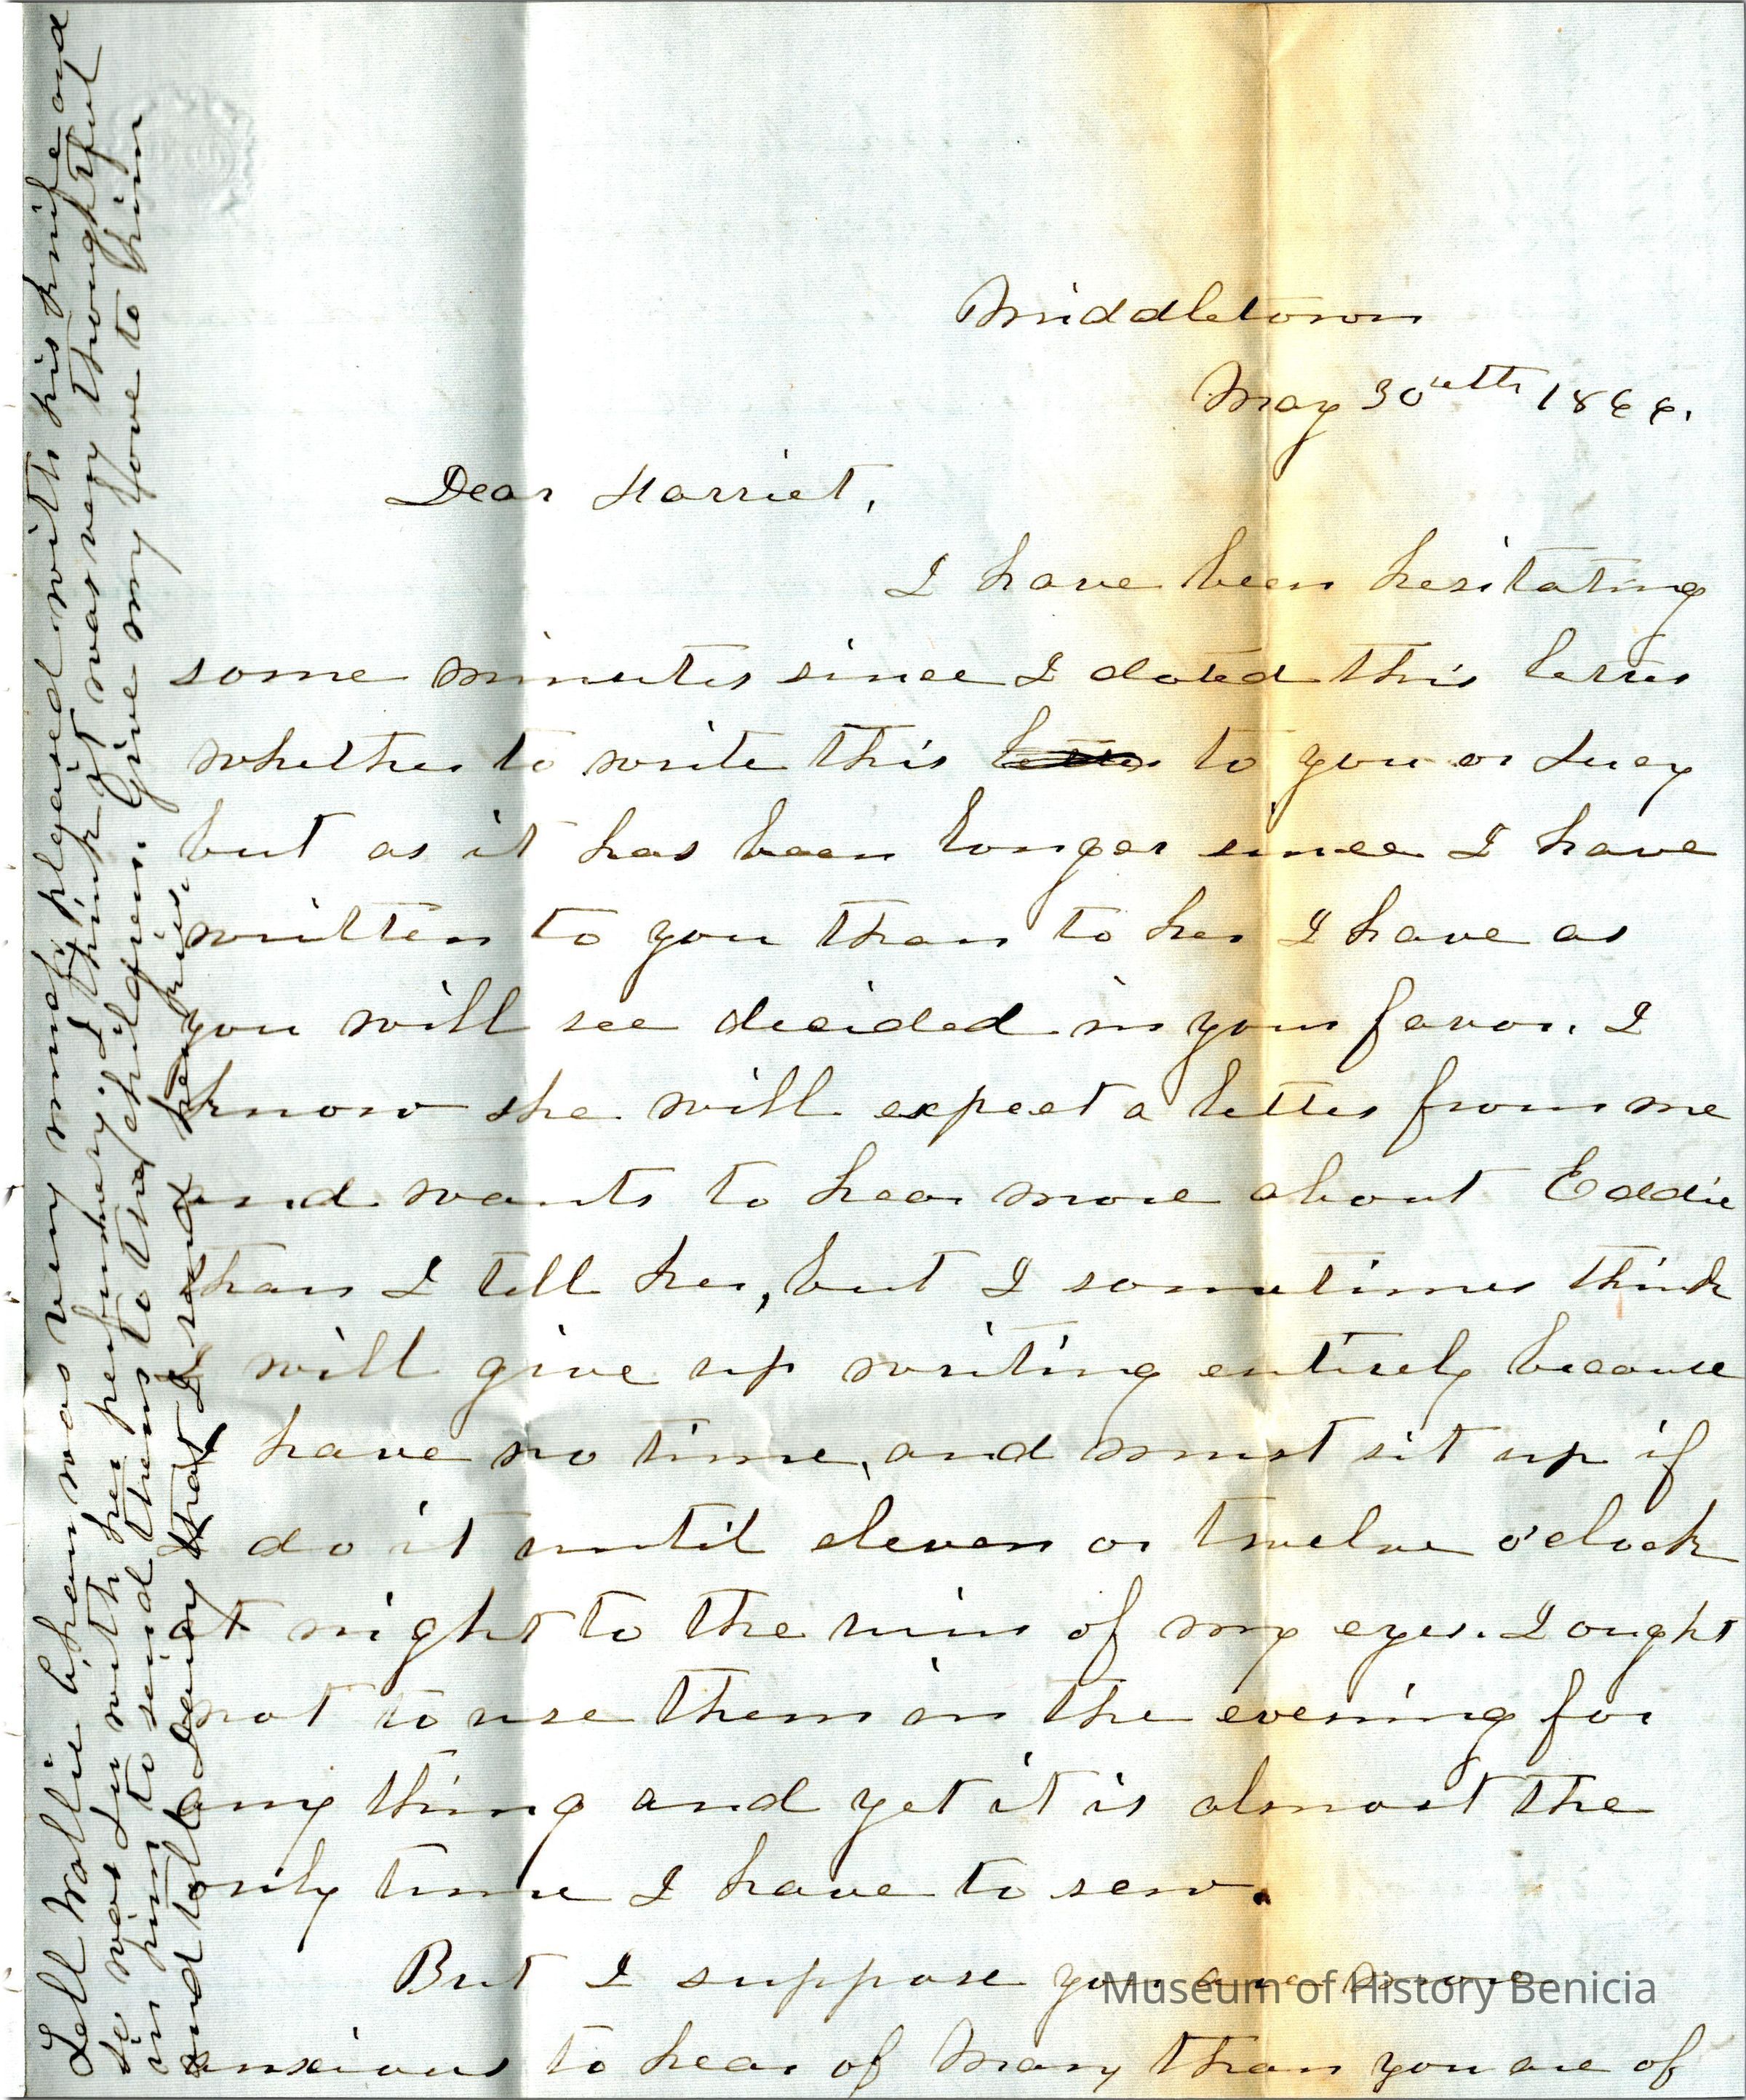 Middletown
May 30th 1866.
Dear Harriet,
I have been hesitating
some minutes since I dated this letter
whether to write this letter to you or Lucy
but as it has been longer since I have
written to you than to her I have as
you will see decided in your favor. I
know she will expect a letter from me
and wants to hear more about Eddie
than I tell her, but I sometimes think
I will give up writing entirely because
I have no time, and must sit up if
I do it until eleven or twelve o'clock
at night to the ruin of my eyes. I ought
not to use them in the evening for
any thing and yet it is almost the
only time I have to sew.
But I suppose you are more
anxious to hear of Mary than you are of
Tell Wallie Ephem was very much pleased with his knife and
so was Lu with her perfumery. I think it was very thoughtful
in him to send them to the children. Give my love to him
and tell Danny that I send her this.
Museum of History Benicia